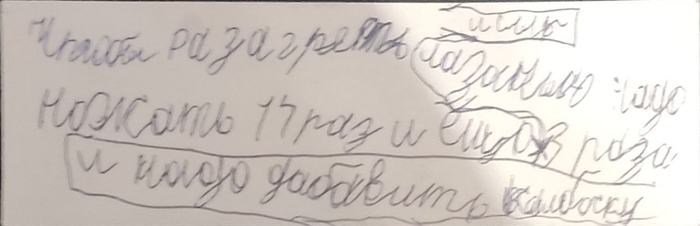 или
Чтобы разагреть лазанью надо
ножать 14 раз и ещо 3 раза
и надо дабавить колбаску